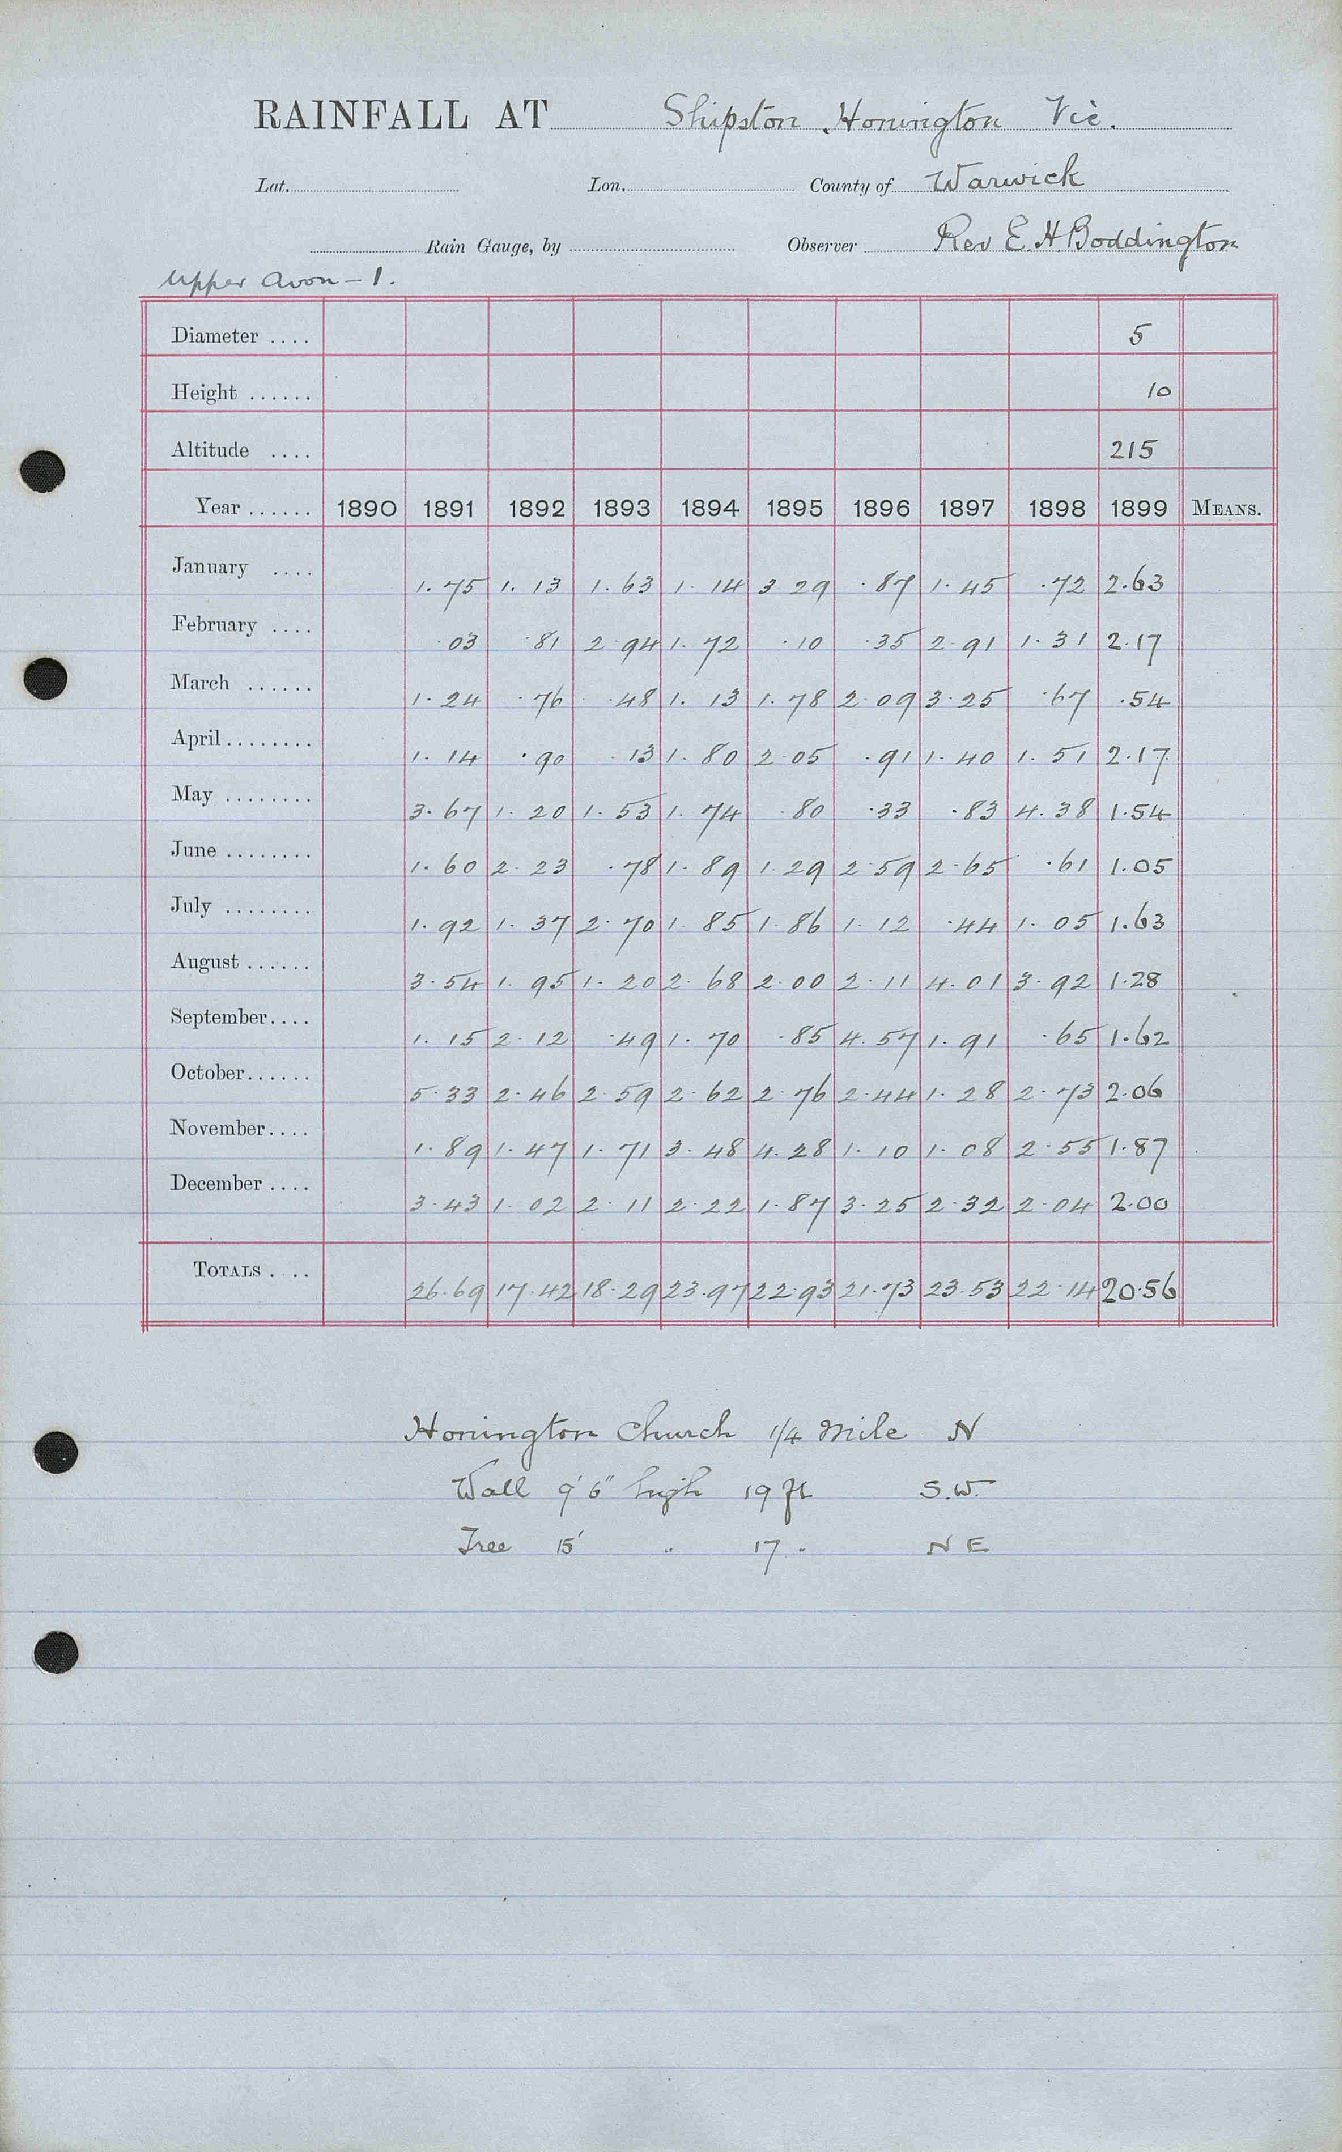 RAINFALL AT Shipston, Honington Vic.
Lat. Lon. County of Warwick
Rain Gauge, by Observer Rev E. H. Boddington
Upper Avon - 1.
Diameter .... 5
Height ...... 10
Altitude .... 215
Year ...... 1890 1891 1892 1893 1894 1895 1896 1897 1898 1899 MEANS.
January .... 1.75 1.13 1.63 1.14 3.29 .87 1.45 .72 2.63
February .... .03 .81 2.94 1.72 .10 .35 2.91 1.31 2.17
March ...... 1.24 .76 .48 1.13 1.78 2.09 3.25 .67 .54
April ........ 1.14 .90 .13 1.80 2.05 .91 1.40 1.51 2.17
May ........ 3.67 1.20 1.53 1.74 .80 .33 .83 4.38 1.54
June ........ 1.60 2.23 .78 1.89 1.29 2.59 2.65 .61 1.05
July ........ 1.92 1.37 2.70 1.85 1.86 1.12 .44 1.05 1.63
August ...... 3.54 1.95 1.20 2.68 2.00 2.11 4.01 3.92 1.28
September .... 1.15 2.12 .49 1.70 .85 4.57 1.91 .65 1.62
October ...... 5.33 2.46 2.59 2.62 2.76 2.44 1.28 2.73 2.06
November .... 1.89 1.47 1.71 3.48 4.28 1.10 1.08 2.55 1.87
December .... 3.43 1.02 2.11 2.22 1.87 3.25 2.32 2.04 2.00
TOTALS .... 26.69 17.42 18.29 23.97 22.93 21.73 23.53 22.14 20.56
Honington Church 1/4 Mile N
Wall 9' 6" high 19 ft S.W.
Tree 15' " 17 " N E